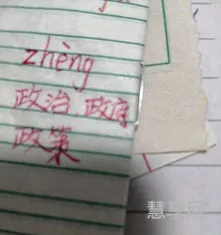 zhèng
政治、政府
政策